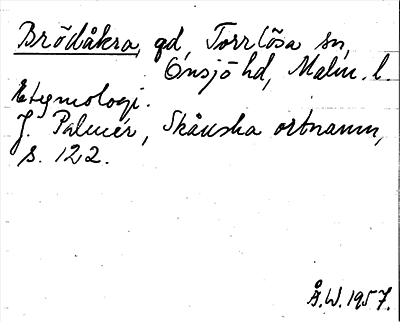 Brödåkra, gd, Torrlösa sn,
Onsjö hd, Malm. l
Etymologi.
J. Palmér, Skånska ortnamn,
s. 122.
Å.W. 1957.